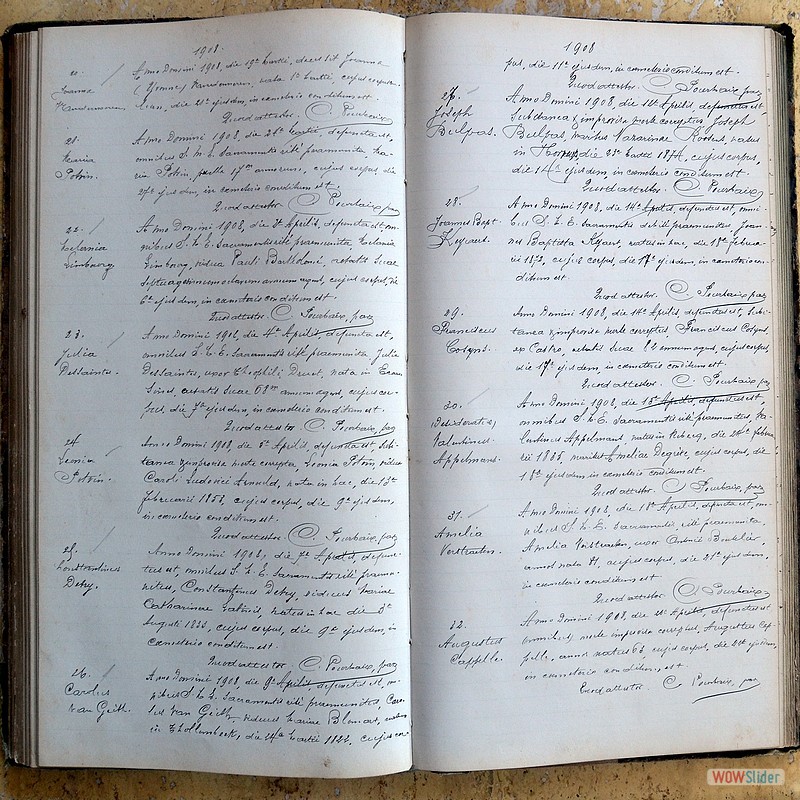 1908.
20.
Joanna
Vandenhoven
Anno Domini 1908, die 19ª Martii, decessit Joanna
(Yvonne) Vandenhoven, nata 1ª Martii, cujus corpus
die 21ª ejusdem, in cemeterio conditum est.
Quod attestor. C. Pourbaix
21.
Maria
Potvin.
Anno Domini 1908, die 26ª Martii, defuncta est,
omnibus S. M. E. Sacramentis rite praemunita Ma-
ria Potvin, puella 17 annorum, cujus corpus, die
ejusdem, in cemeterio conditum est.
Quod attestor. C. Pourbaix, par
22.
Melania
Limbourg
Anno Domini 1908, die 3ª Aprilis, defuncta est om-
nibus S. M. E. Sacramentis rite praemunita Melania
Limbourg, vidua Pauli, aetatis suae
annum agens, cujus corpus, die
6ª ejusdem, in cemeterio conditum est.
Quod attestor. C. Pourbaix, par
23.
Julia
Dessaintes.
Anno Domini 1908, die 4ª Aprilis, defuncta est,
omnibus S. M. E. Sacramentis rite praemunita Julia
Dessaintes, uxor Theophili, nata in
aetatis suae 68 annum agens, cujus cor-
pus, die 7ª ejusdem, in cemeterio conditum est.
Quod attestor C. Pourbaix, par
24.
Leonia
Potvin.
Anno Domini 1908, die 5ª Aprilis, defuncta est subi-
tanea et improvisa morte correpta Leonia Potvin, vidua
Caroli Ludovici Arnould, nata in hac, die 13ª
februarii 1858, cujus corpus, die 9ª ejusdem,
in cemeterio conditum est.
Quod attestor C. Pourbaix, par
25.
Constantinus
Detry.
Anno Domini 1908, die 7ª Aprilis, defunc-
tus est, omnibus S. M. E. Sacramentis rite praemu-
nitus, Constantinus Detry, viduus Mariae
Catharinae, natus in hac die 3ª
Augusti 1823, cujus corpus, die 9ª ejusdem, in
cemeterio conditum est.
Quod attestor C. Pourbaix, par
26.
Carolus
Van Geith.
Anno Domini 1908, die 9ª Aprilis, defunctus est, om-
nibus S. M. E. Sacramentis rite praemunitus, Caro-
lus Van Geith, viduus Mariae, natus
in, die 24ª Martii 1822, cujus cor-
1908
pus, die 11ª ejusdem, in cemeterio conditum est.
Quod attestor. C. Pourbaix, par
27.
Joseph
Bulpas.
Anno Domini 1908, die Aprilis, defunctus est,
Subitanea, improvisa morte correptus Joseph
Bulpas, maritus Nazarinae, natus
in, die 23ª Martii 1874, cujus corpus,
die 14ª ejusdem, in cemeterio conditum est.
Quod attestor C. Pourbaix
28.
Joannes Bapt
Anno Domini 1908, die 14ª Aprilis, defunctus est, omni-
bus S. M. E. Sacramentis debite praemunitus, Joan-
nes Baptista, natus in hac, die 18ª februa-
rii 1872, cujus corpus, die 17ª ejusdem, in cemeterio con-
ditum est.
Quod attestor. C. Pourbaix, par
29.
Franciscus
Cosyns.
Anno Domini 1908, die 14ª Aprilis, defunctus est, subi-
tanea et improvisa morte correptus Franciscus Cosyns,
ex Castro, aetatis suae annum agens, cujus corpus,
die 17ª ejusdem, in cemeterio conditum est.
Quod attestor. C. Pourbaix, par
30.
Valentinus
Appelmans.
Anno Domini 1908, die 15ª Aprilis, defunctus est
omnibus S. M. E. Sacramentis rite praemunitus, Va-
lentinus Appelmans, natus in, die 24ª februa-
rii 1885, maritus Ameliae, cujus corpus, die
18ª ejusdem in cemeterio conditum est.
Quod attestor C. Pourbaix, par
31.
Amelia
Verstraeten.
Anno Domini 1908, die 18ª Aprilis, defuncta est, om-
nibus S. M. E. Sacramentis rite praemunita
Amelia Verstraeten, uxor,
annos nata, cujus corpus, die 21ª ejusdem,
in cemeterio conditum est.
Quod attestor C. Pourbaix
32.
Augustus
Cappelle.
Anno Domini 1908, die Aprilis, defunctus est
morte improvisa correptus, Augustus Cap-
pelle, annos natus 63, cujus corpus, die ejusdem,
in cemeterio conditum est.
Quod attestor. C. Pourbaix, par
WOWSlider